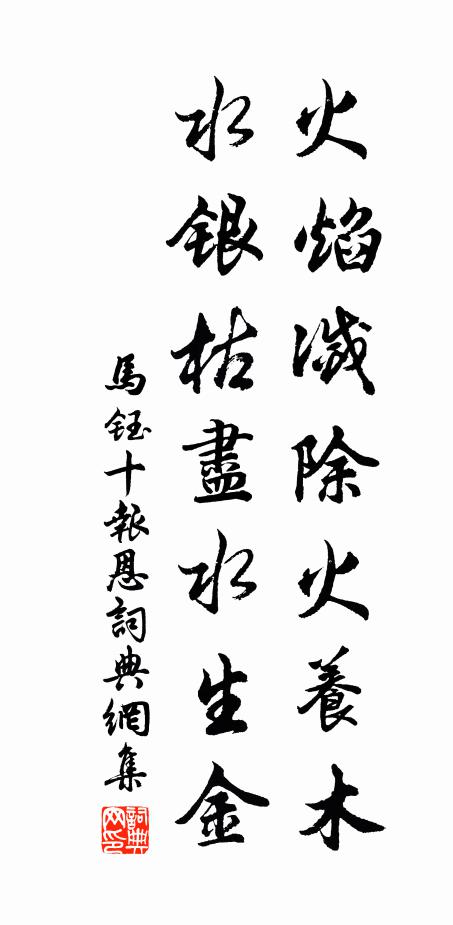 火焰滅除火養木
水銀枯盡水生金
馬鈺十報恩詞典網集
詞典網印